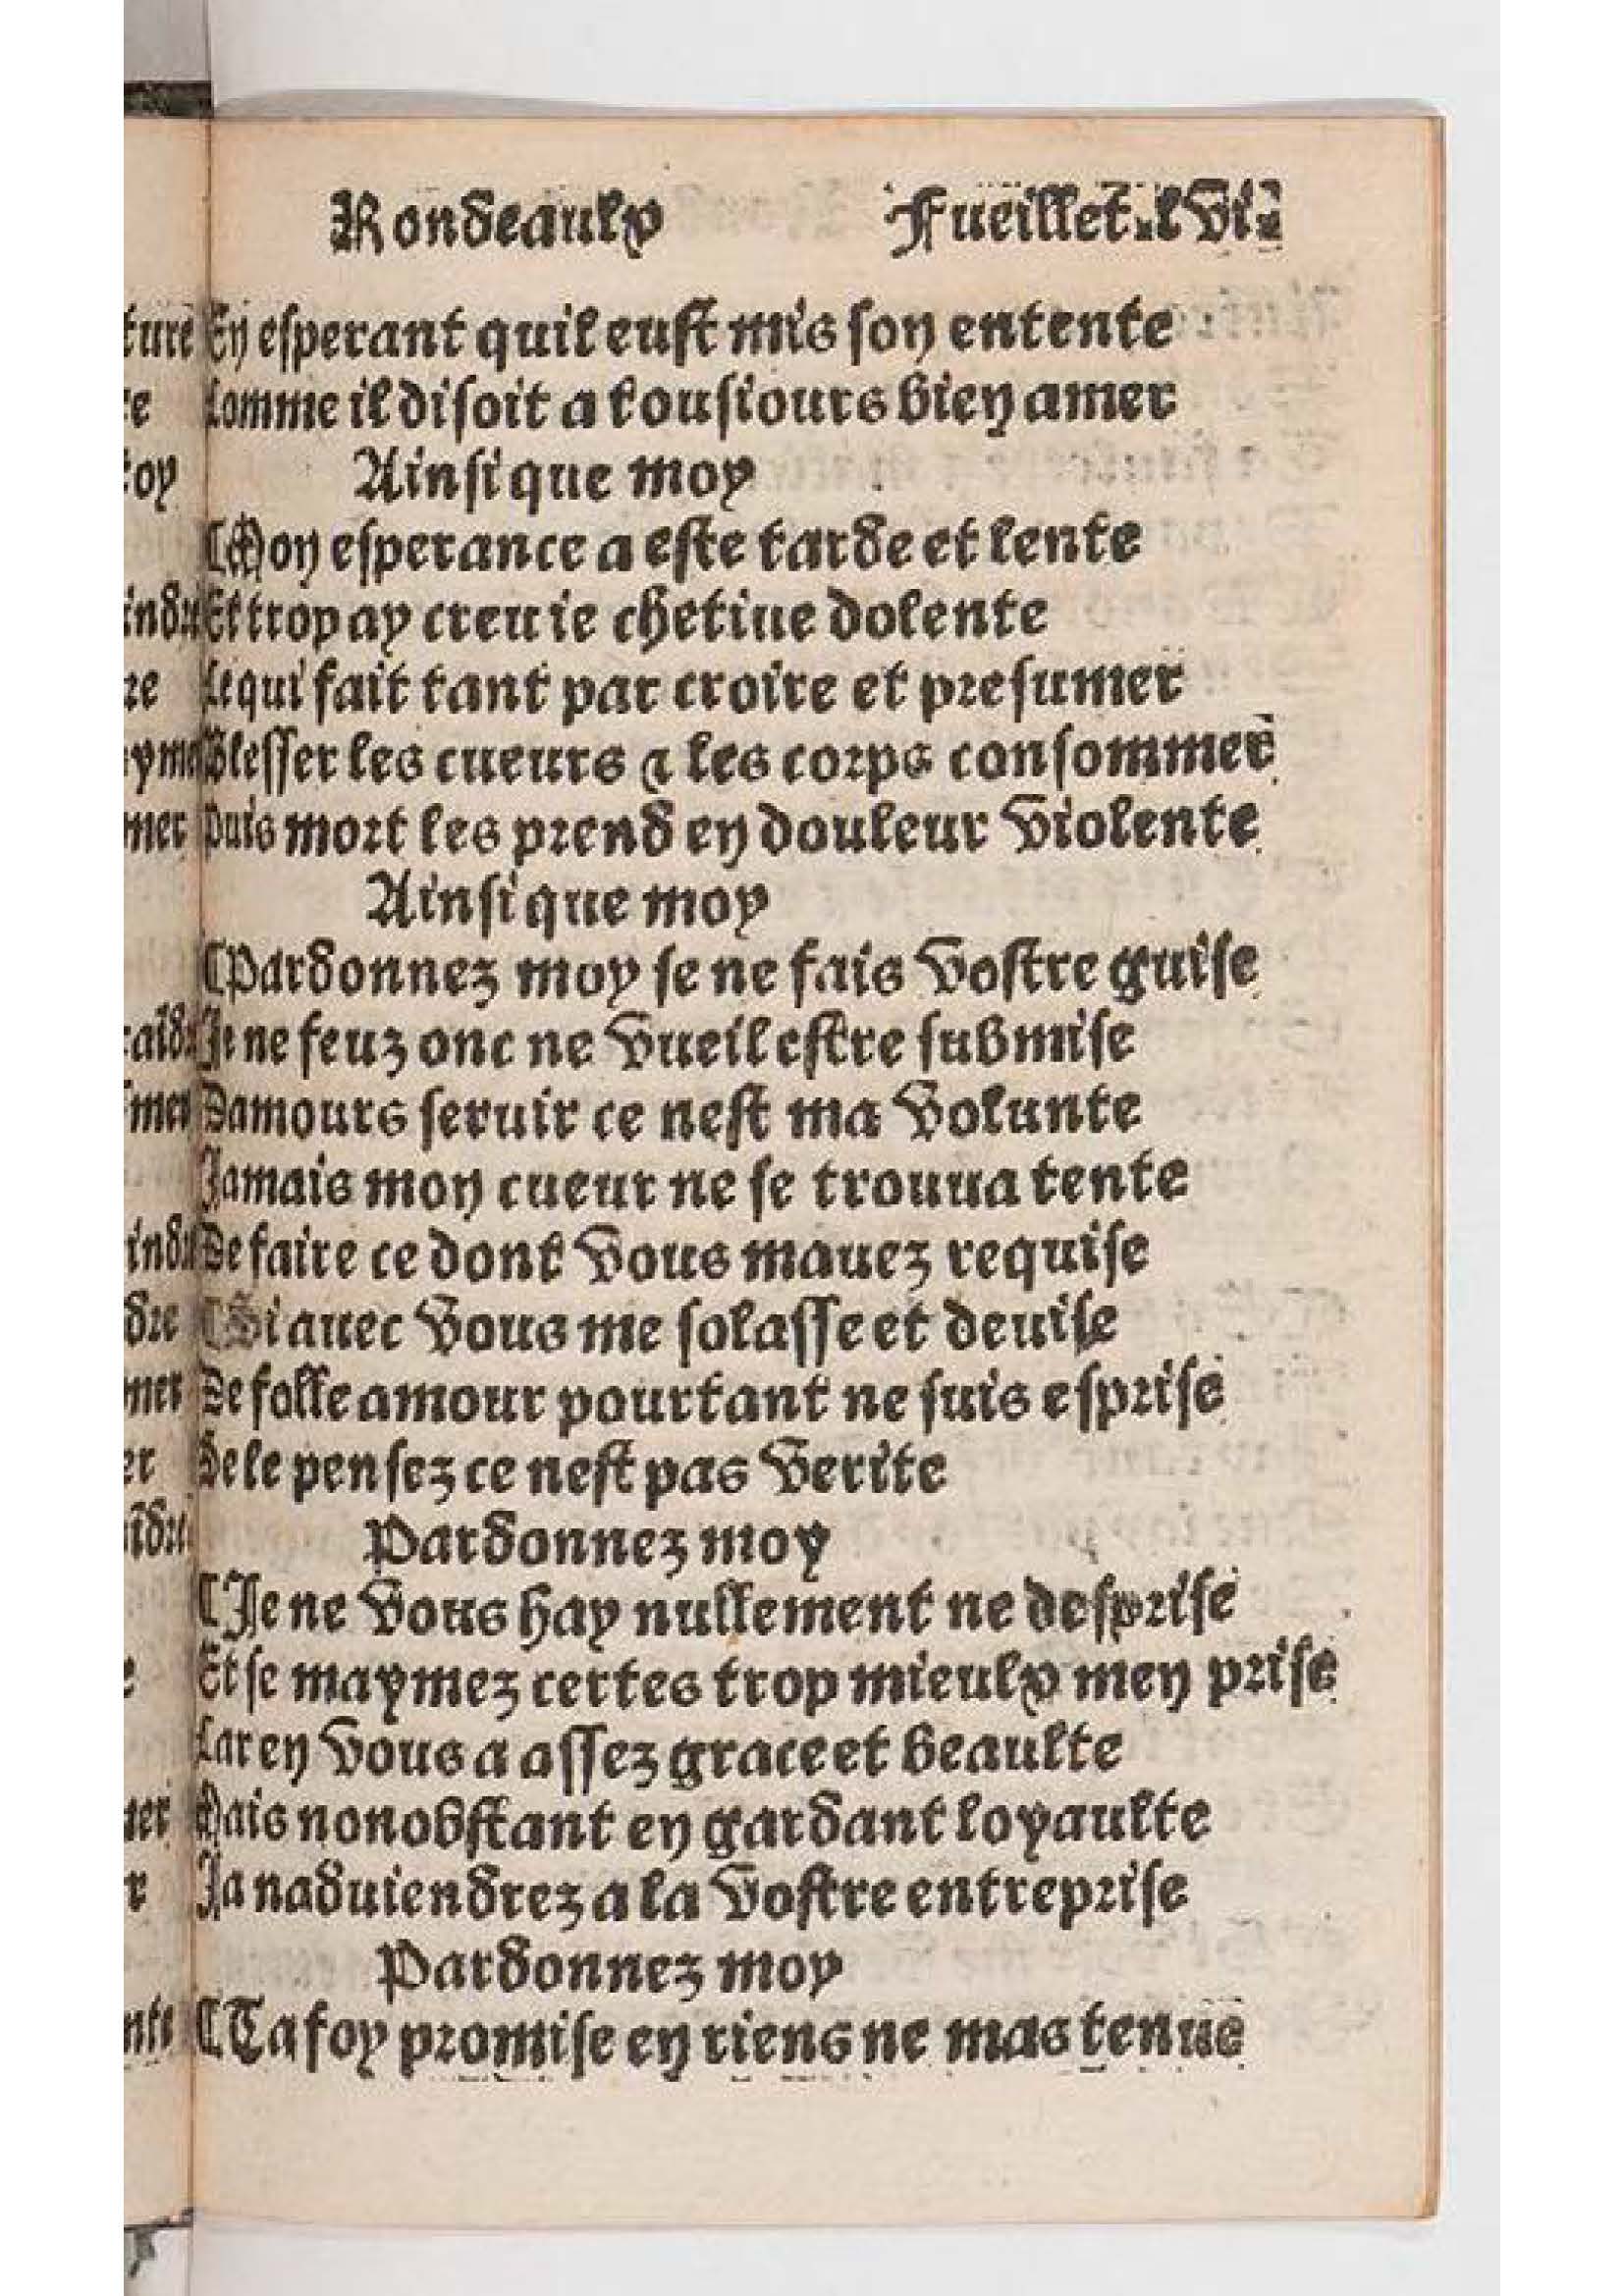 Rondeaulx Fueillet.lvi.
En esperant quil eust mis son entente
Comme il disoit a tousiours bien amer
Ainsi que moy
⸿Mon esperance a este tarde et lente
Et trop ay creu ie chetiue dolente
Ce qui fait tant par croire et presumer
Blesser les cueurs ⁊ les corps consommer
Puis mort les prend en douleur violente
Ainsi que moy
⸿Pardonnez moy se ne fais vostre guise
Je ne feuz onc ne vueil estre submise
Damours seruir ce nest ma volunte
Jamais mon cueur ne se trouua tente
De faire ce dont vous mauez requise
⸿Si auec vous me solasse et deuise
De folle amour pourtant ne suis esprise
Se le pensez ce nest pas verite
Pardonnez moy
⸿Je ne vous hay nullement ne desprise
Et se maymez certes trop mieulx men prise
Car en vous a assez grace et beaulte
Mais nonobstant en gardant loyaulte
Ja naduiendrez a la vostre entreprise
Pardonnez moy
⸿Ta foy promise en riens ne mas tenue